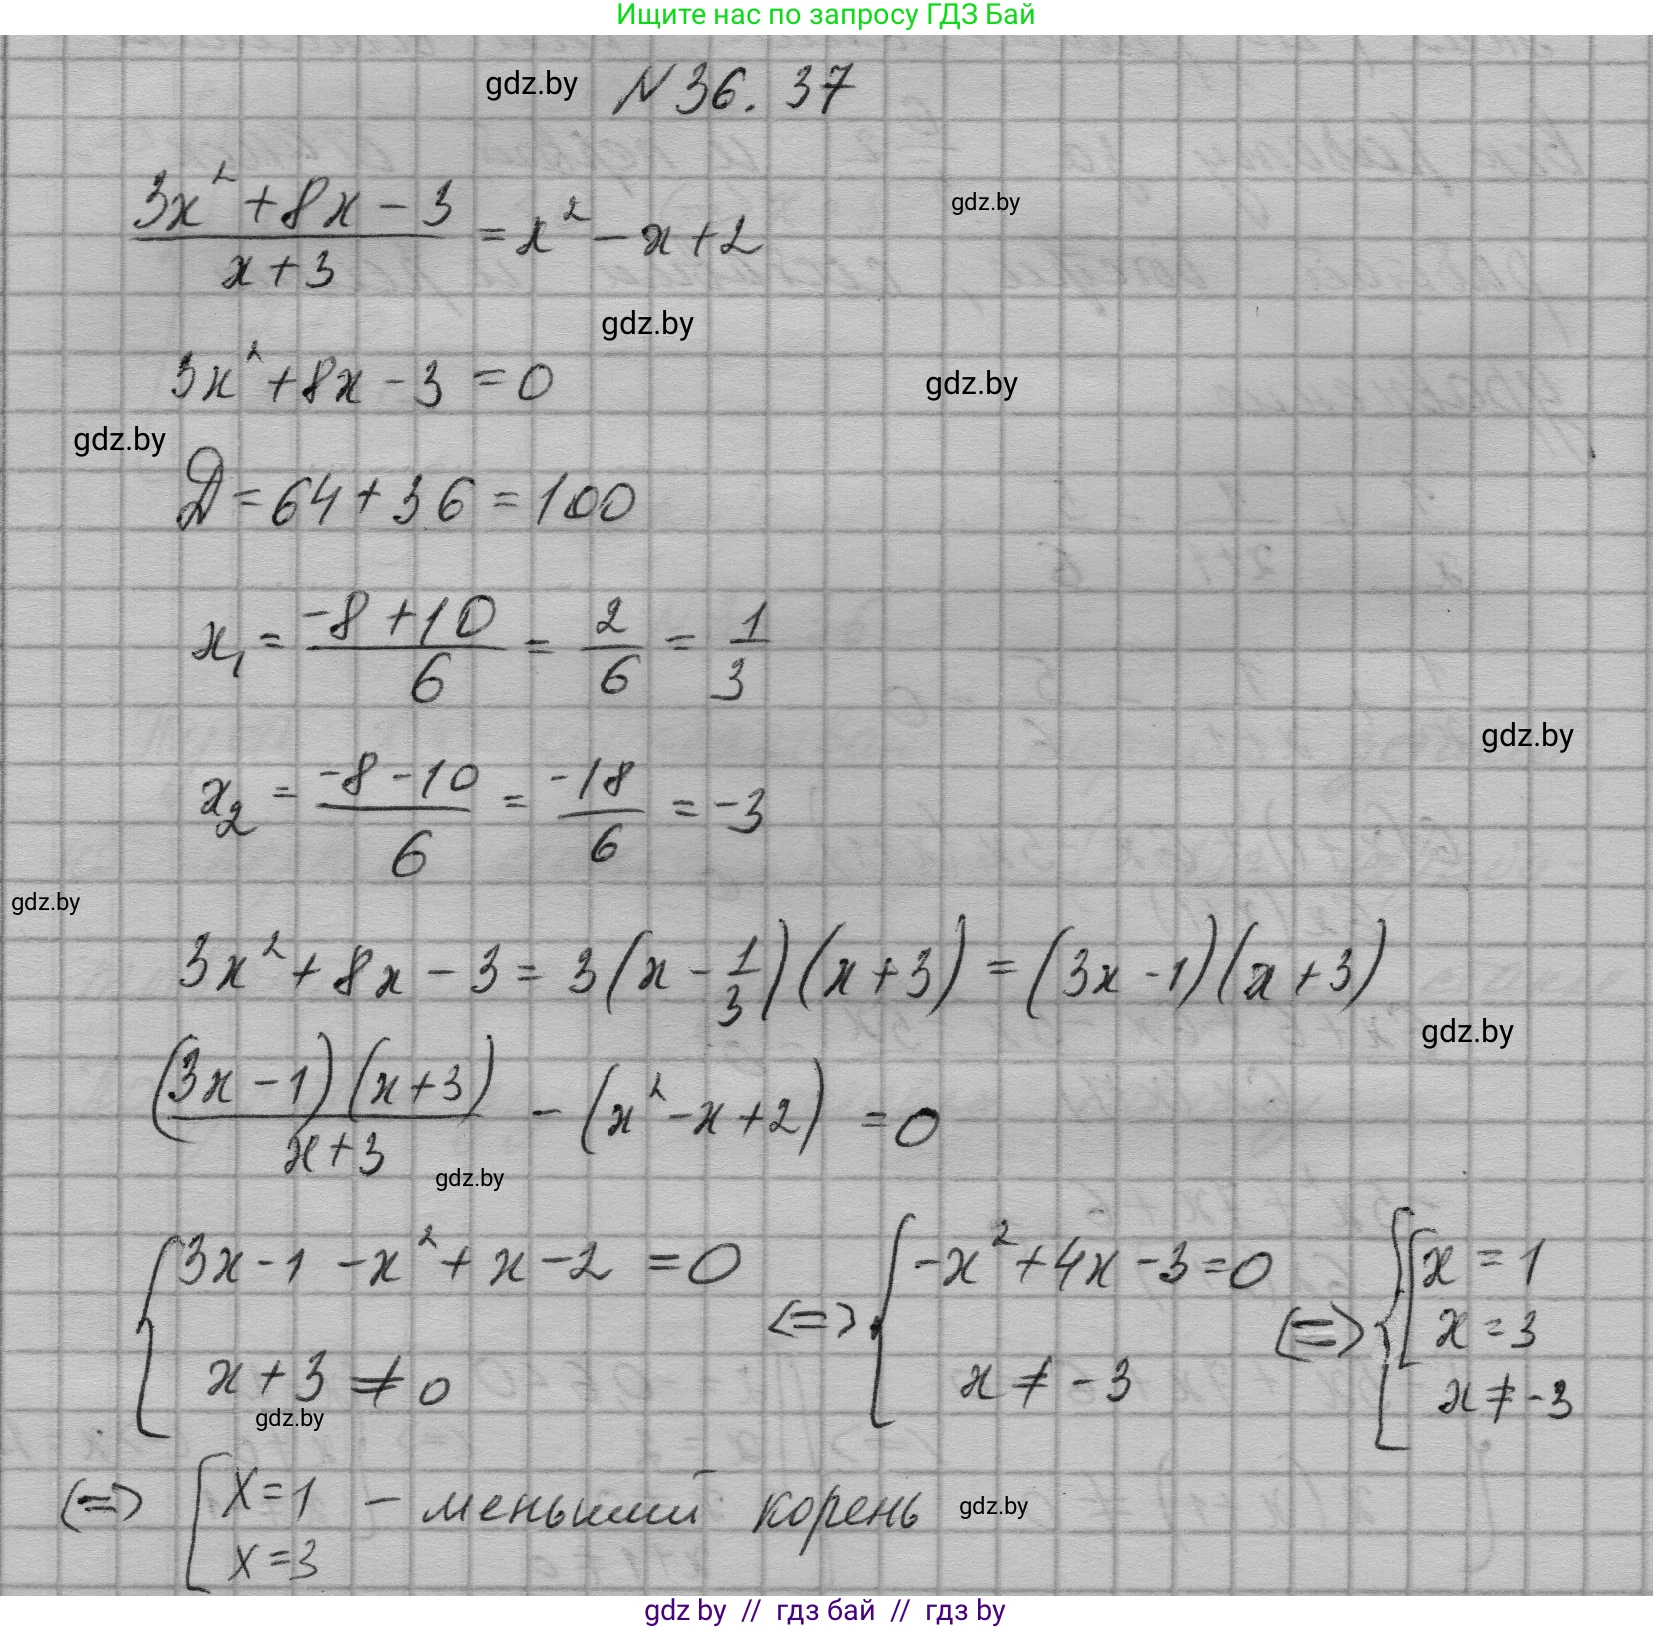 Ищите нас по запросу ГДЗ Бай
gdz.by N 36. 37
(3x² + 8x - 3)/(x + 3) = x² - x + 2
gdz.by
gdz.by
3x² + 8x - 3 = 0
gdz.by
gdz.by
D = 64 + 36 = 100
x₁ = (-8 + 10)/6 = 2/6 = 1/3
gdz.by
x₂ = (-8 - 10)/6 = -18/6 = -3
gdz.by
3x² + 8x - 3 = 3(x - 1/3)(x + 3) = (3x - 1)(x + 3)
gdz.by
((3x - 1)(x + 3))/(x + 3) - (x² - x + 2) = 0
gdz.by
{ 3x - 1 - x² + x - 2 = 0 <=> { -x² + 4x - 3 = 0 <=> { [ x = 1
x = 3
x + 3 ≠ 0 x ≠ -3 x ≠ -3
gdz.by
<=> [ x = 1 - меньший корень gdz.by
x = 3
gdz by // гдз бай // gdz by